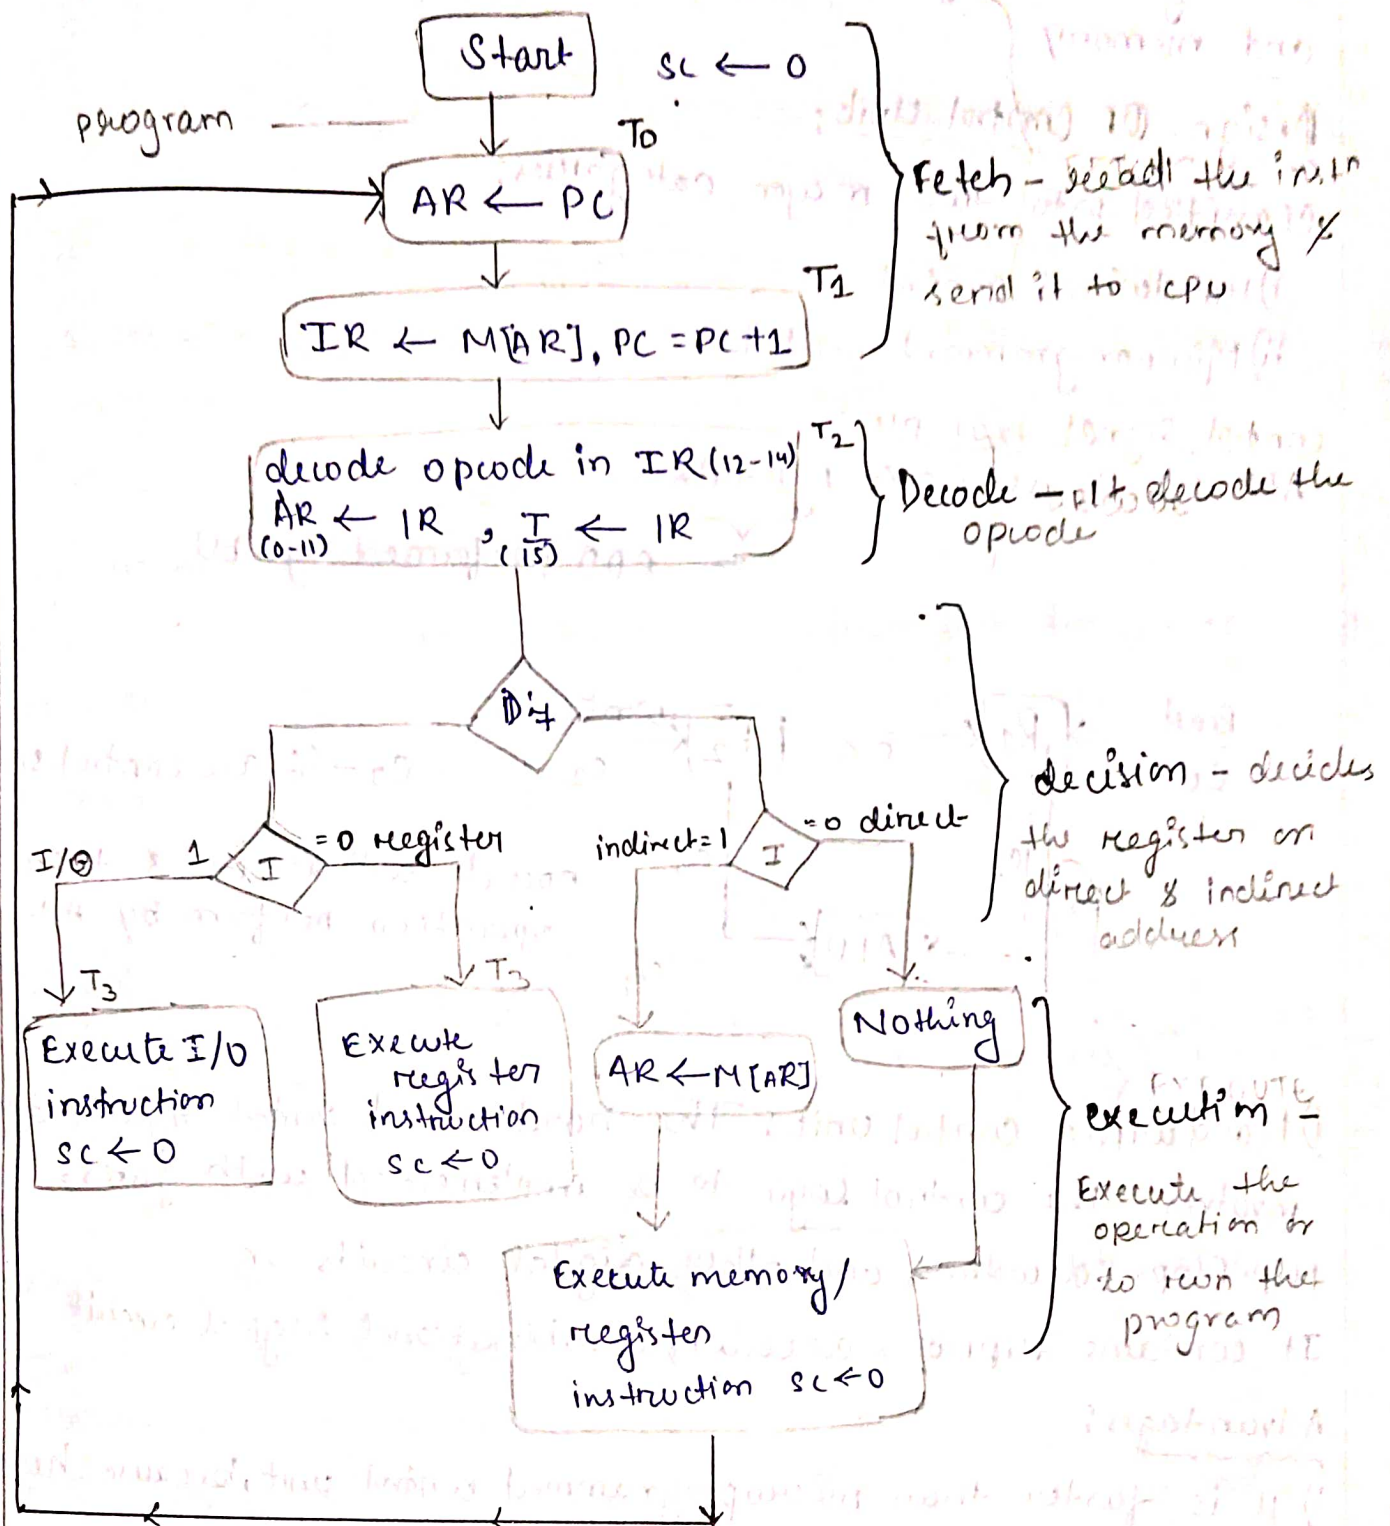 Start
SC ← 0
program
T0
AR ← PC
Fetch - the instn
from the memory &
send it to CPU
T1
IR ← M[AR], PC = PC+1
T2
decode opcode in IR (12-14)
AR ← IR , I ← IR
(0-11) (15)
Decode - It decode the
opcode
I/O 1 I =0 register
indirect=1 I =0 direct
decision - decides
the register or
direct & indirect
address
T3
T3
Execute I/O
instruction
SC ← 0
Execute
register
instruction
SC ← 0
AR ← M[AR]
Nothing
execution -
Execute the
operation or
to run the
program
Execute memory/
register
instruction SC ← 0